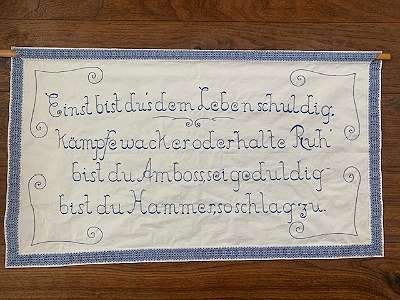 Einst bist du's dem Leben schuldig,
kämpfe wacker oder halte Ruh'
bist du Amboss sei geduldig
bist du Hammer, so schlag zu.